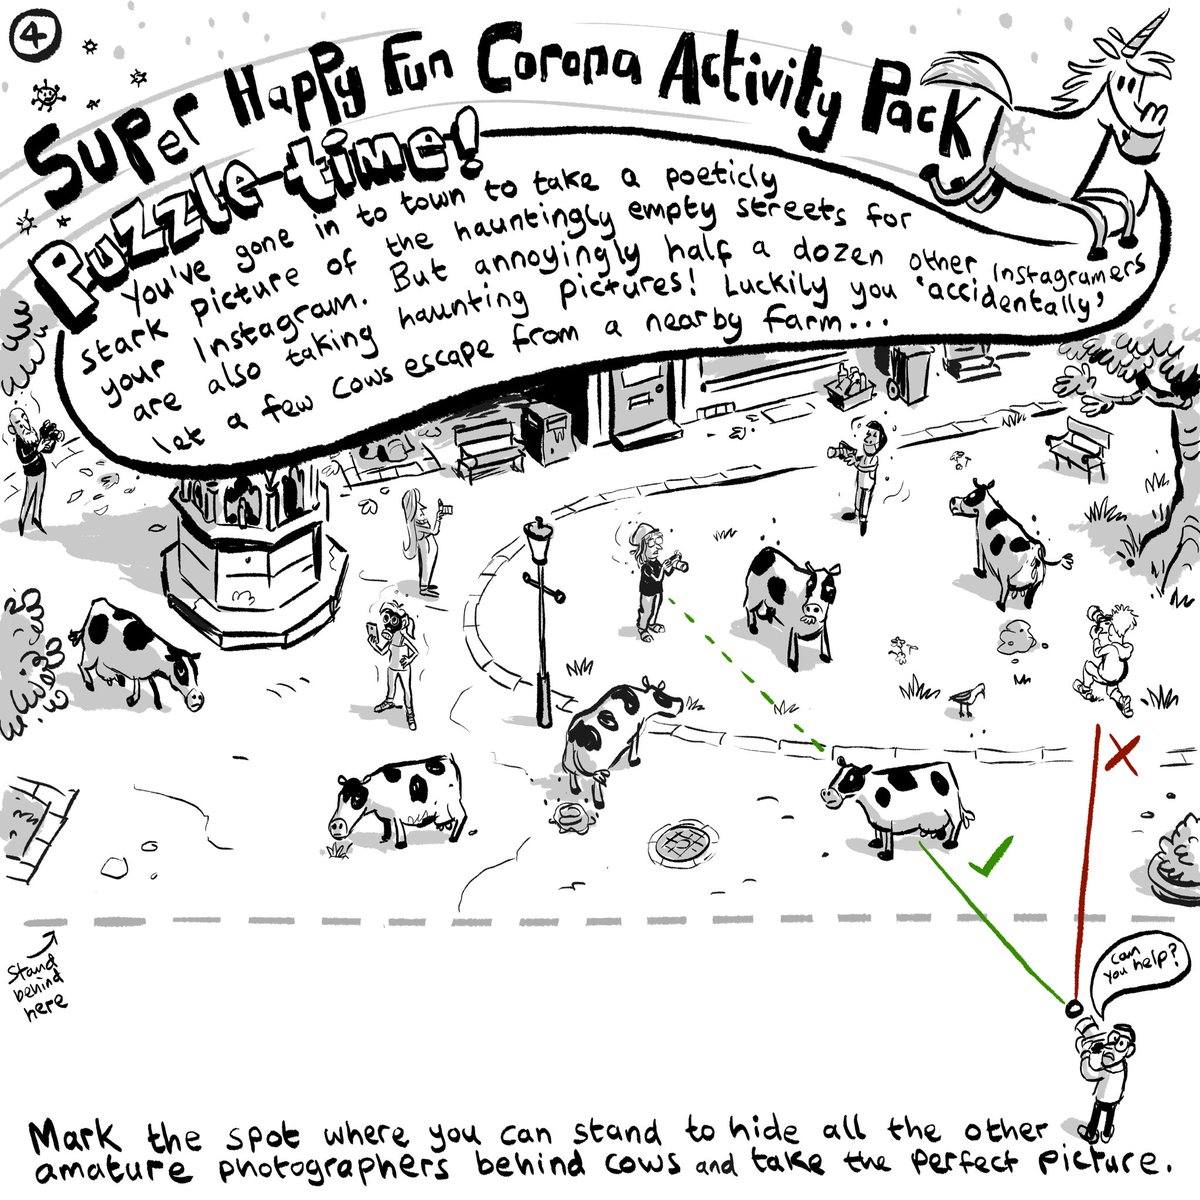 4
Super Happy Fun Corona Activity Pack
Puzzle-time!
You've gone in to town to take a poeticly
stark picture of the hauntingly empty streets for
your Instagram. But annoyingly half a dozen other Instagramers
are also taking haunting pictures! Luckily you 'accidentally'
let a few cows escape from a nearby farm...
Stand
behind
here
can
you help?
Mark the spot where you can stand to hide all the other
amature photographers behind cows and take the perfect picture.